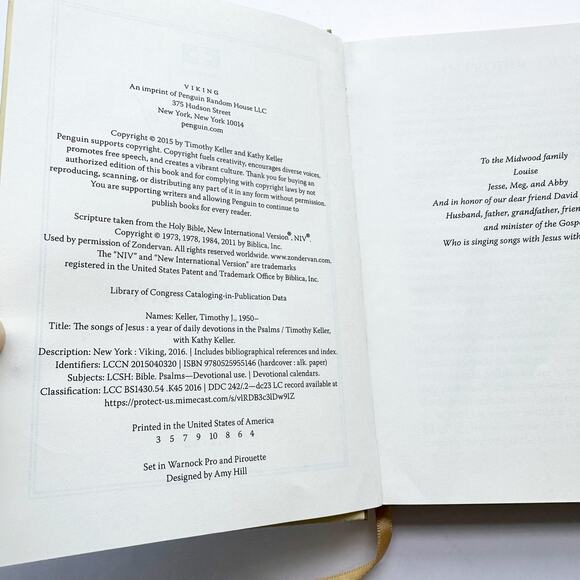 VIKING
An imprint of Penguin Random House LLC
375 Hudson Street
New York, New York 10014
penguin.com
Copyright © 2015 by Timothy Keller and Kathy Keller
Penguin supports copyright. Copyright fuels creativity, encourages diverse voices,
promotes free speech, and creates a vibrant culture. Thank you for buying an
authorized edition of this book and for complying with copyright laws by not
reproducing, scanning, or distributing any part of it in any form without permission.
You are supporting writers and allowing Penguin to continue to
publish books for every reader.
Scripture taken from the Holy Bible, New International Version®, NIV®.
Copyright © 1973, 1978, 1984, 2011 by Biblica, Inc.
Used by permission of Zondervan. All rights reserved worldwide. www.zondervan.com.
The "NIV" and "New International Version" are trademarks
registered in the United States Patent and Trademark Office by Biblica, Inc.
Library of Congress Cataloging-in-Publication Data
Names: Keller, Timothy J., 1950–
Title: The songs of Jesus : a year of daily devotions in the Psalms / Timothy Keller,
with Kathy Keller.
Description: New York : Viking, 2016. | Includes bibliographical references and index.
Identifiers: LCCN 2015040320 | ISBN 9780525955146 (hardcover : alk. paper)
Subjects: LCSH: Bible. Psalms—Devotional use. | Devotional calendars.
Classification: LCC BS1430.54 .K45 2016 | DDC 242/.2—dc23 LC record available at
https://protect-us.mimecast.com/s/vlRDB3c3lDw9lZ
Printed in the United States of America
3 5 7 9 10 8 6 4
Set in Warnock Pro and Pirouette
Designed by Amy Hill
To the Midwood family
Louise
Jesse, Meg, and Abby
And in honor of our dear friend David
Husband, father, grandfather, frien
and minister of the Gospe
Who is singing songs with Jesus with